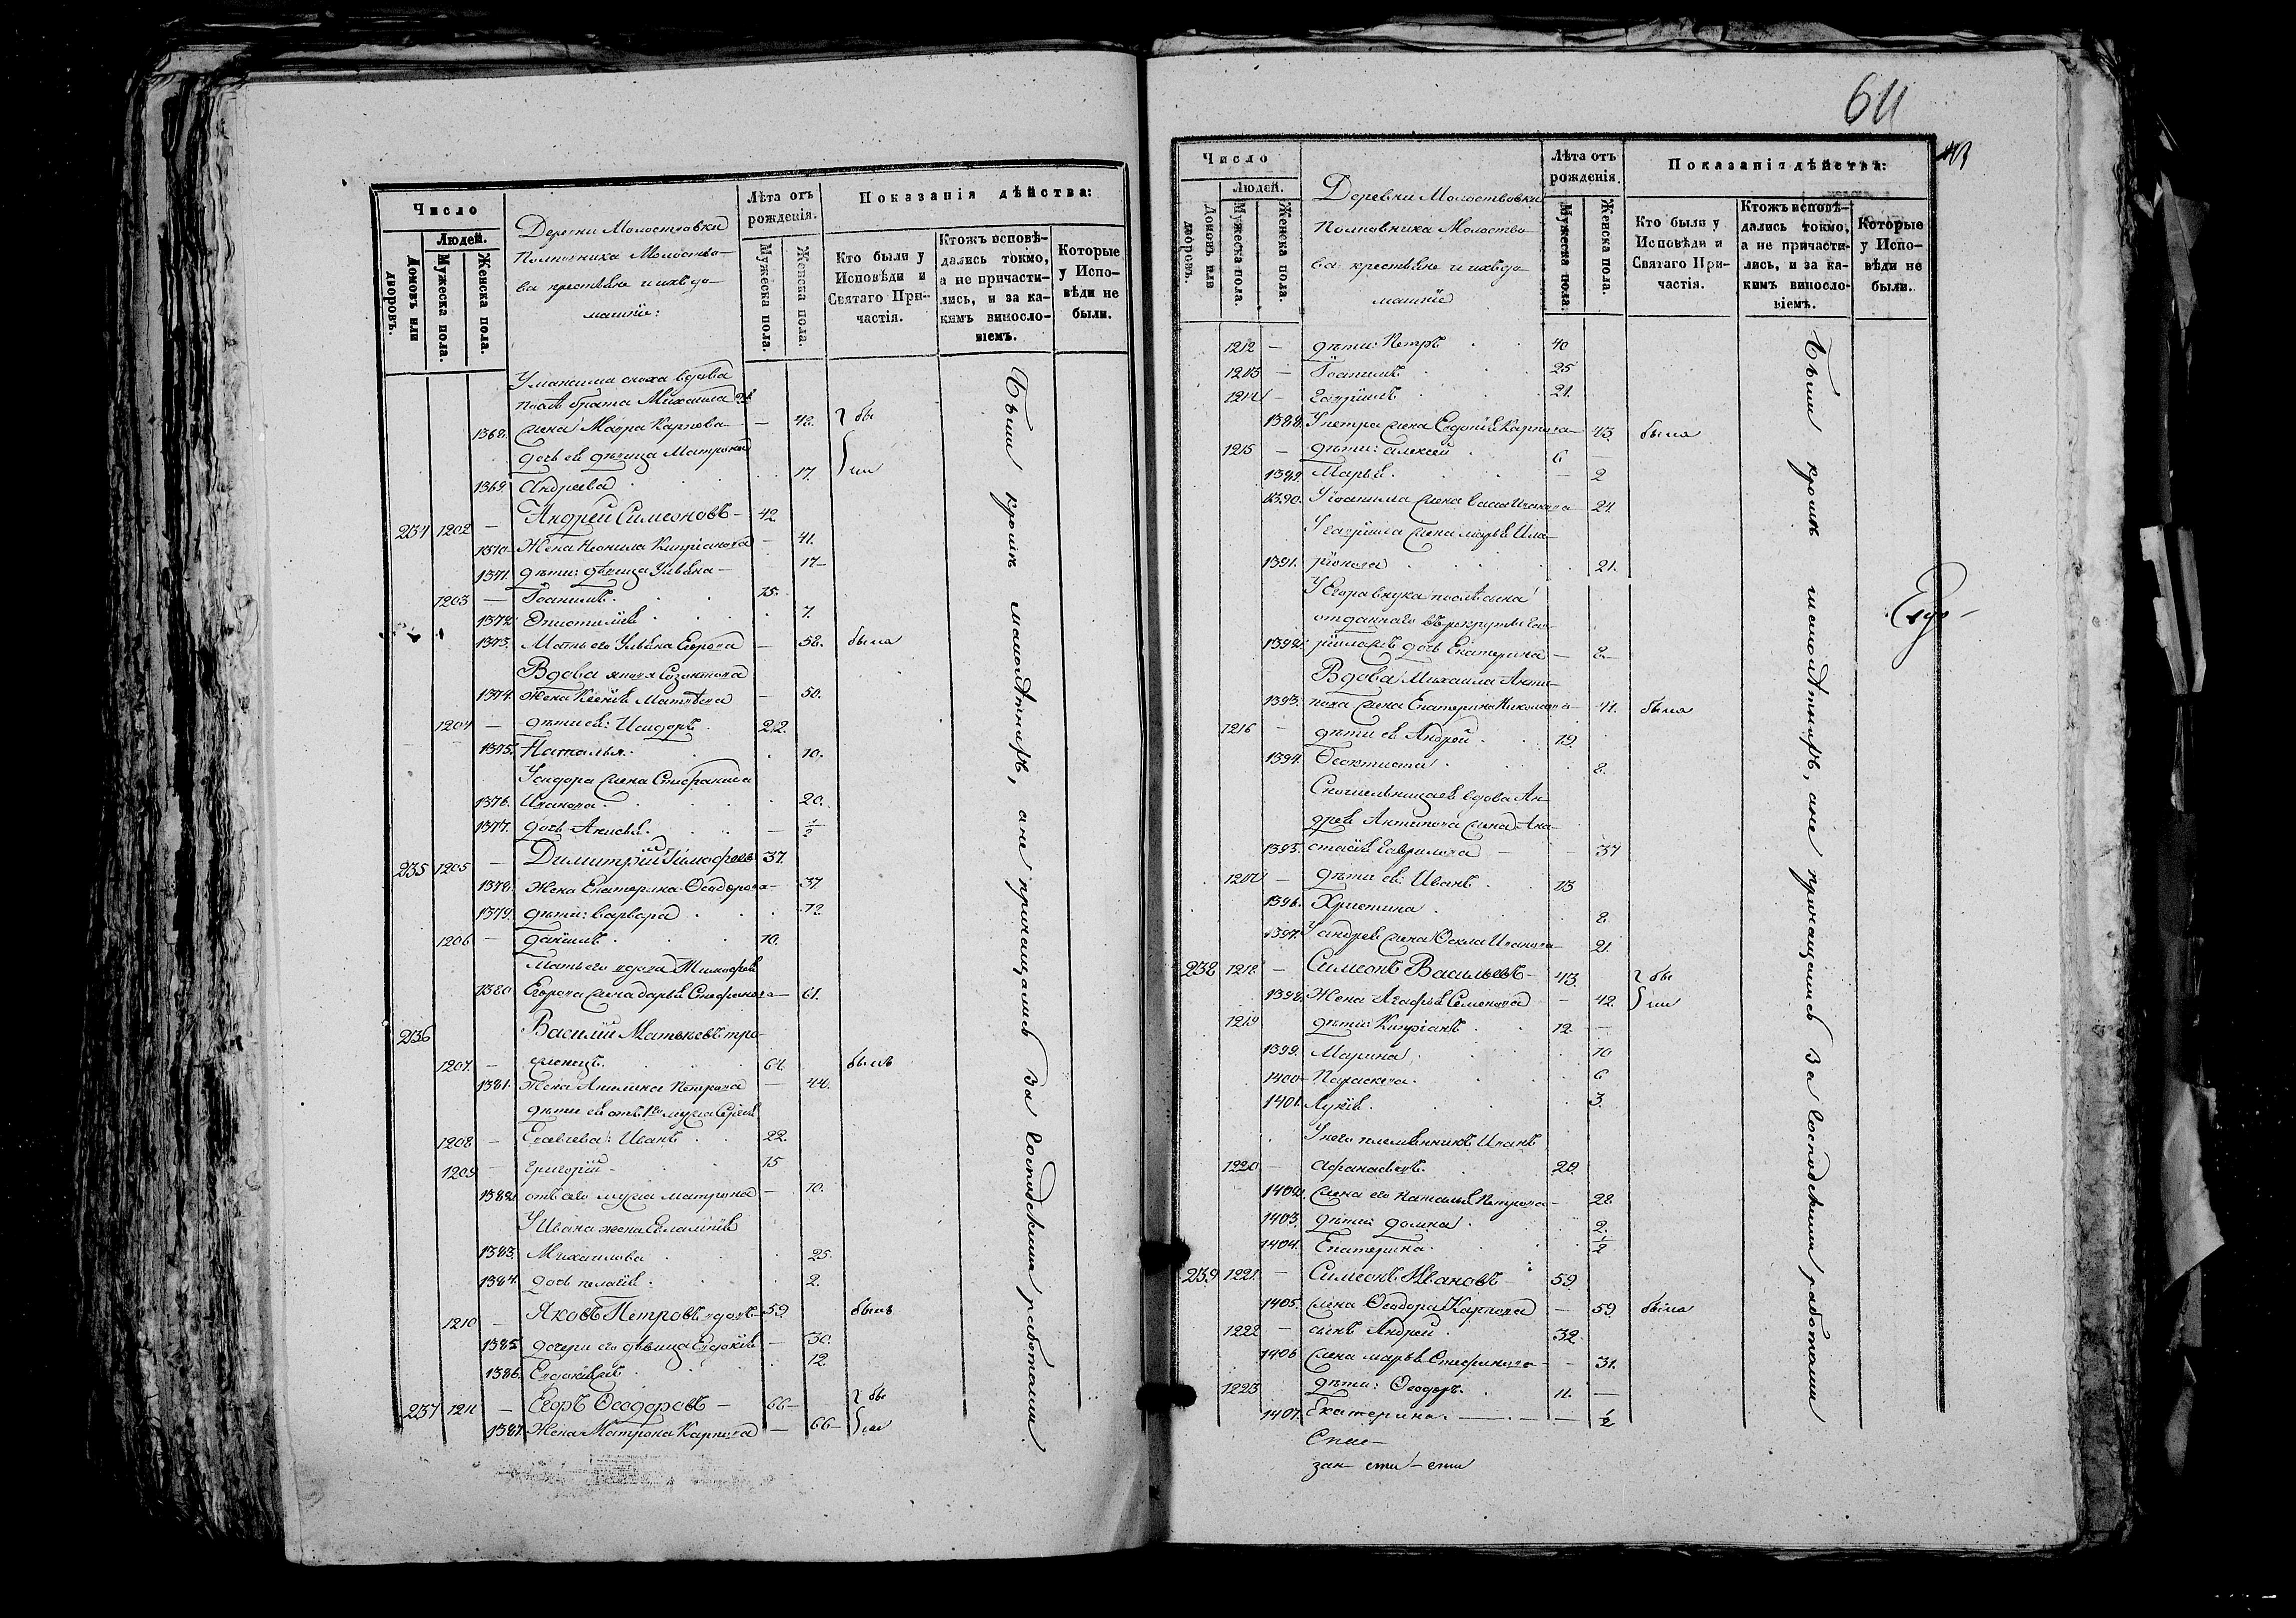 Число
Людей.
Домовъ или дворовъ.
Мужеска пола.
Женска пола.
Деревни Молостовки
Полковника Молоство-
ва крестьяне и ихъ до-
машніе:
Лѣта отъ рожденія.
Мужеска пола.
Женска пола.
Показанія дѣйства:
Кто были у Исповѣди и Святаго Причастія.
Ктожъ исповѣ-
дались токмо,
а не причасти-
лись, и за ка-
кимъ винносло-
віемъ.
Которые
у Испо-
вѣди не
были.
У максима сноха вдова
послѣ брата Михаила
1368. жена Мавра Карпова — 48. бы
дочь ея дѣвица Матрона
1369. Андреева 17. ли
234 1202 — Андрей Симеоновъ — 42.
1370. Жена Неонила Кипріанова — 41.
1371. дѣти: дѣвица Ульяна — 17
1203 — Іоакимъ 15.
1372. Эпистимія 7.
1373. Мать его Ульяна Егорова — 58. была
Вдова Созонтова
1374. жена Ксенія Матвѣева — 50.
1204 — дѣти ея: Исидоръ 22.
1375. Наталья 10.
Усидора жена Стефанида
1376. Иванова 20.
1377. дочь Анисья — 1/2
235 1205 — Димитрій Тимофеевъ 37.
1378. Жена Екатерина Ѳеодорова — 37
1379. дѣти: варвара 12.
1206 — даніилъ 10.
Мать его вдова Тимофея
1380 Егорова жена дарья Стефанова — 61.
236 Василій Матвеевъ
1207 — 64. былъ
1381. Жена Акилина Петрова — 44.
дѣти ея отъ 1го мужа Сергѣя
1208 — Иванъ 22.
1209 — григорій 15
1382. отъ сего мужа матрона — 10.
У Ивана жена Евлампія
1383. Михаилова 25
1384. дочь пелагія 2.
1210 — Яковъ Петровъ вдовъ — 59 былъ
1385. дочери его дѣвица Евдокія — 30.
1386. Евдокія 12
237 1211 — Егоръ Ѳеодоровъ — 66 бы
1387. Жена Матрона Карпова — 66 ли
Были кромѣ малолѣтныхъ, а не причащались За Господскими работами.
64
Число
Людей.
Домовъ или дворовъ.
Мужеска пола.
Женска пола.
Деревни Молостовки
Полковника Молоство-
ва крестьяне и ихъ до-
машніе
Лѣта отъ рожденія.
Мужеска пола.
Женска пола.
Показанія дѣйства:
Кто были у
Исповѣди и
Святаго При-
частія.
Ктожъ исповѣ-
дались токмо,
а не причасти-
лись, и за ка-
кимъ винносло-
віемъ.
Которые
у Испо-
вѣди не
были.
1212 — дѣти: Петръ 40
1213 — Іоакимъ 25
1214 — Гавріилъ 21.
1388. У петра жена Евдокія Карпова — 43. была
1215 — дѣти: алексей 6 —
1389. Марья — 2
1390. У іоакима жена Васса Иванова — 24.
У гавріила жена марья Ила-
1391. ріонова 21.
У Егора внука послѣ сына
отданнаго въ рекруты Гав-
1392. дочь Екатерина — 8.
Вдова Михаила Анти-
1393. пова жена Екатерина Николаева — 41. была
1216 — дѣти ея Андрей 19.
1394. Ѳеоктиста 8.
вдова Ан-
дрея Антипова жена Ана-
1395. стасія Гаврилова — 37
1217 — дѣти ея: Иванъ 13
1396. Христина 8.
1397. У андрея жена Ѳекла Иванова — 21.
238 1218 — Симеонъ Васильевъ — 43. бы
1398. Жена Агафья Семенова — 42. ли
1219 дѣти: Кипріанъ 12. —
1399. Марина 10
1400 Параскева 6
1401. Лукія 3.
У него племянникъ Иванъ
1220 — Афанасьевъ 28.
1402. жена его Наталья Петрова — 28
1403. дѣти: домна 2.
1404. Екатерина 1/2
239 1221. — Симеонъ Ивановъ 59.
1405. жена Ѳеодора Карпова — 59. была
1222 — сынъ Андрей 32.
1406 жена марья Стефанова — 31.
1223 дѣти: Ѳеодоръ 11. —
1407. Екатерина — 1/2
Были кромѣ малолѣтныхъ, а не причащались За Господскими работами